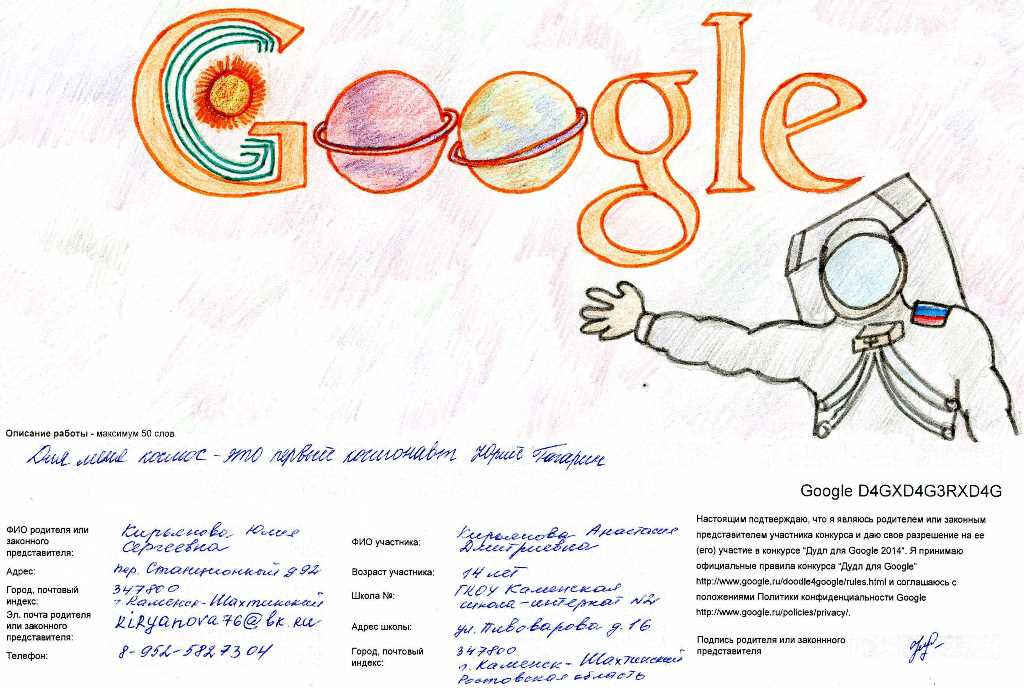 Google
Описание работы - максимум 50 слов
Для меня космос - это первый космонавт Юрий Гагарин
Google D4GXD4G3RXD4G
ФИО родителя или
законного
представителя:
Кирьянова Юлия
Сергеевна
Адрес:
пер. Станционный д 92
Город, почтовый
индекс:
347800
г. Каменск-Шахтинский
Эл. почта родителя
или законного
представителя:
kiryanova76@bk.ru
Телефон:
8-952-5827304
ФИО участника:
Кирьянова Анастасия
Дмитриевна
Возраст участника:
14 лет
Школа №:
ГКОУ Каменская
школа-интернат №2
Адрес школы:
ул. Пивоварова д. 16
Город, почтовый
индекс:
347800
г. Каменск-Шахтинский
Ростовская область
Настоящим подтверждаю, что я являюсь родителем или законным
представителем участника конкурса и даю свое разрешение на ее
(его) участие в конкурсе "Дудл для Google 2014". Я принимаю
официальные правила конкурса "Дудл для Google"
http://www.google.ru/doodle4google/rules.html и соглашаюсь с
положениями Политики конфиденциальности Google
http://www.google.ru/policies/privacy/.
Подпись родителя или законнного
представителя